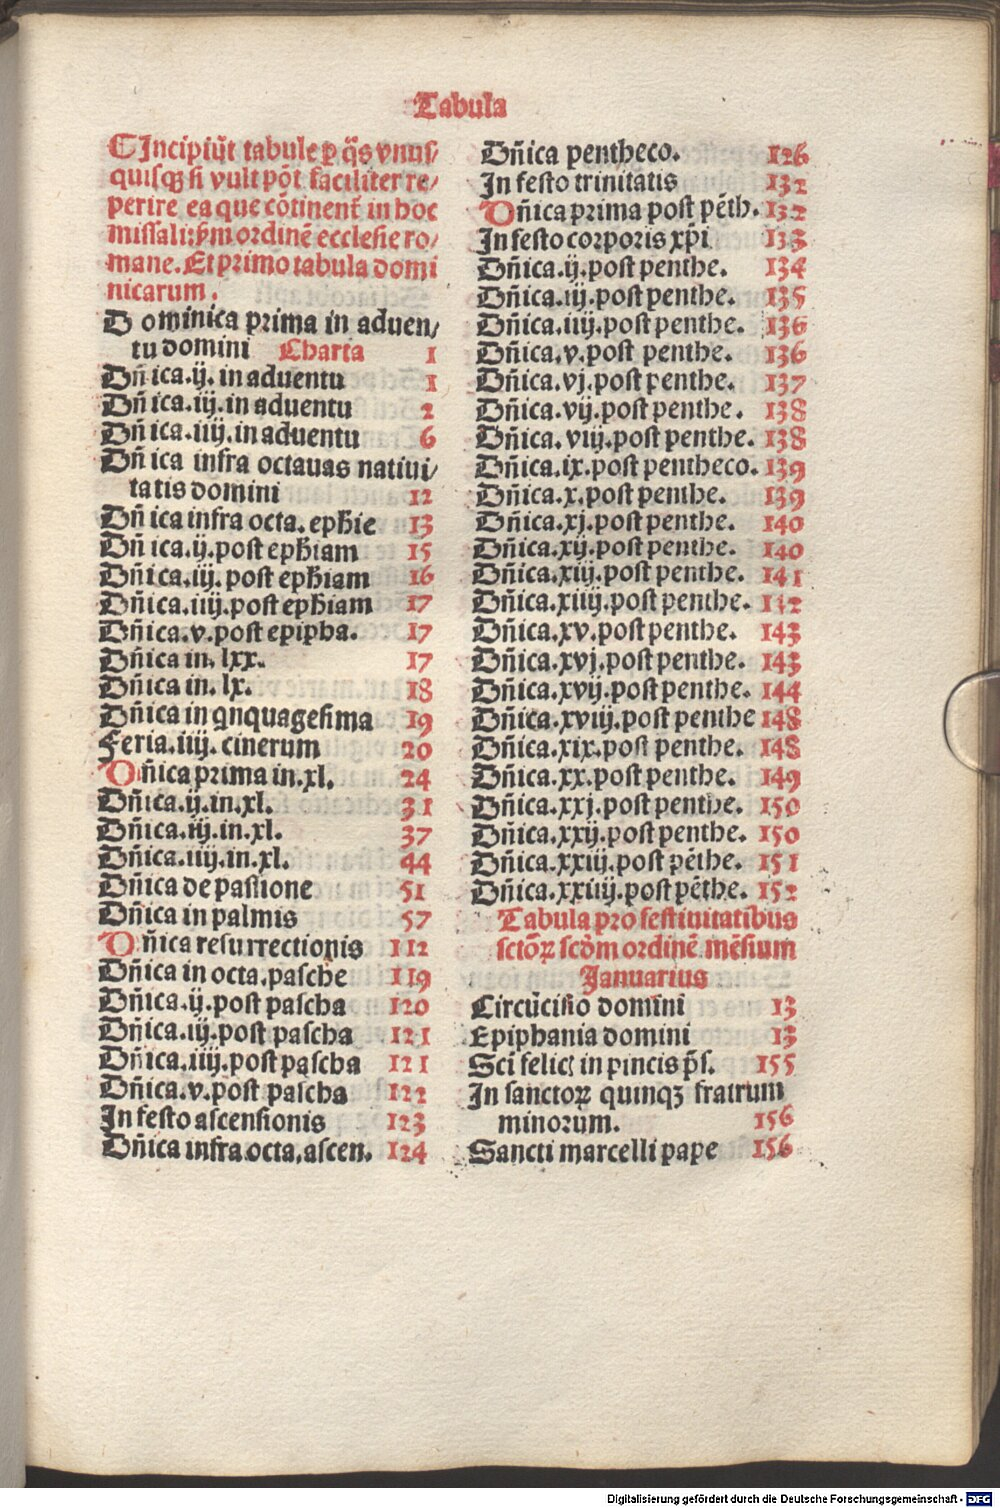 Tabula
¶Incipiũt tabule ꝑ q̃s vnus⸗
quisqꝫ si vult põt faciliter re⸗
perire ea que cõtinent̃ in hoc
missali: ẜm ordinẽ ecclesie ro⸗
mane. Et primo tabula domi
nicarum.
Dominica prima in aduen⸗
tu domini Charta 1
Dñica.ij. in aduentu 1
Dñica.iij. in aduentu 2
Dñica.iiij. in aduentu 6
Dñica infra octauas natiui⸗
tatis domini 12
Dñica infra octa. eph̃ie 13
Dñica.ij. post eph̃iam 15
Dñica.iij. post eph̃iam 16
Dñica.iiij. post eph̃iam 17
Dñica.v. post epipha. 17
Dñica in. lxx. 17
Dñica in. lx. 18
Dñica in qnquagesima 19
Feria.iiij. cinerum 20
Dñica prima in.xl. 24
Dñica.ij.in.xl. 31
Dñica.iij.in.xl. 37
Dñica.iiij.in.xl. 44
Dñica de passione 51
Dñica in palmis 57
Dñica resurrectionis 112
Dñica in octa.pasche 119
Dñica.ij.post pascha 120
Dñica.iij.post pascha 121
Dñica.iiij.post pascha 121
Dñica.v.post pascha 122
In festo ascensionis 123
Dñica infra octa.ascen. 124
Dñica pentheco. 126
In festo trinitatis 132
Dñica prima post pẽth. 132
In festo corporis xp̃i 133
Dñica.ij.post penthe. 134
Dñica.iij.post penthe. 135
Dñica.iiij.post penthe. 136
Dñica.v.post penthe. 136
Dñica.vj.post penthe. 137
Dñica.vij.post penthe. 138
Dñica.viij.post penthe. 138
Dñica.ix.post pentheco. 139
Dñica.x.post penthe. 139
Dñica.xj.post penthe. 140
Dñica.xij.post penthe. 140
Dñica.xiij.post penthe. 141
Dñica.xiiij.post penthe. 142
Dñica.xv.post penthe. 143
Dñica.xvj.post penthe. 143
Dñica.xvij.post penthe. 144
Dñica.xviij.post penthe 148
Dñica.xix.post penthe. 148
Dñica.xx.post penthe. 149
Dñica.xxj.post penthe. 150
Dñica.xxij.post penthe. 150
Dñica.xxiij.post pẽthe. 151
Dñica.xxiiij.post pẽthe. 152
Tabula pro festiuitatibus
sctõꝝ scđm ordinẽ mẽsium
Januarius
Circũcisio domini 13
Epiphania domini 13
Sci felicꝭ in pincis p̃s. 155
In sanctoꝝ quinqꝫ fratrum
minorum. 156
Sancti marcelli pape 156
Digitalisierung gefördert durch die Deutsche Forschungsgemeinschaft - DFG